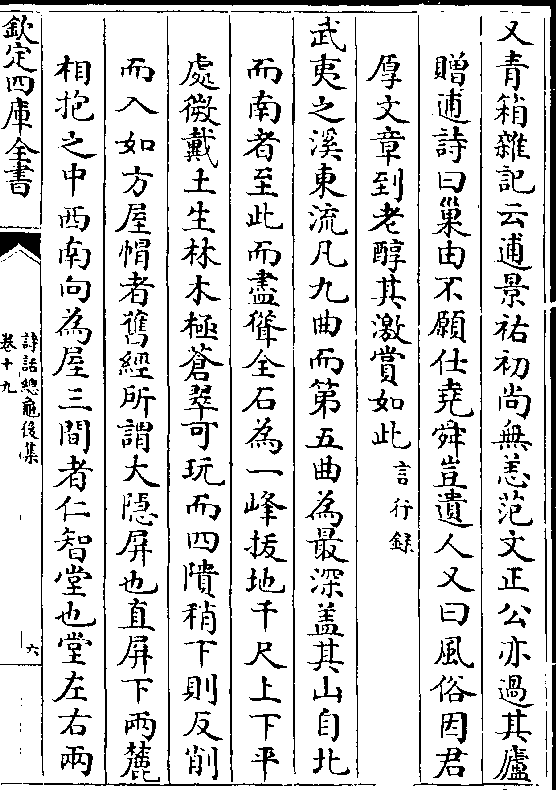 又青箱雜記云逋景祐初尚無恙范文正公亦過其廬
贈逋詩曰巢由不願仕堯舜豈遺人又曰風俗因君
厚文章到老醇其激賞如此言行録
武夷之溪東流凡九曲而第五曲為最深盖其山自北
而南者至此而盡聳全石為一峰拔地千尺上下平
處微戴土生林木極蒼翠可玩而四隤稍下則反削
而入如方屋帽者舊經所謂大隱屏也直屏下兩麓
相抱之中西南向為屋三間者仁智堂也堂左右兩
欽定四庫全書
詩話總龜後集
卷十九
六